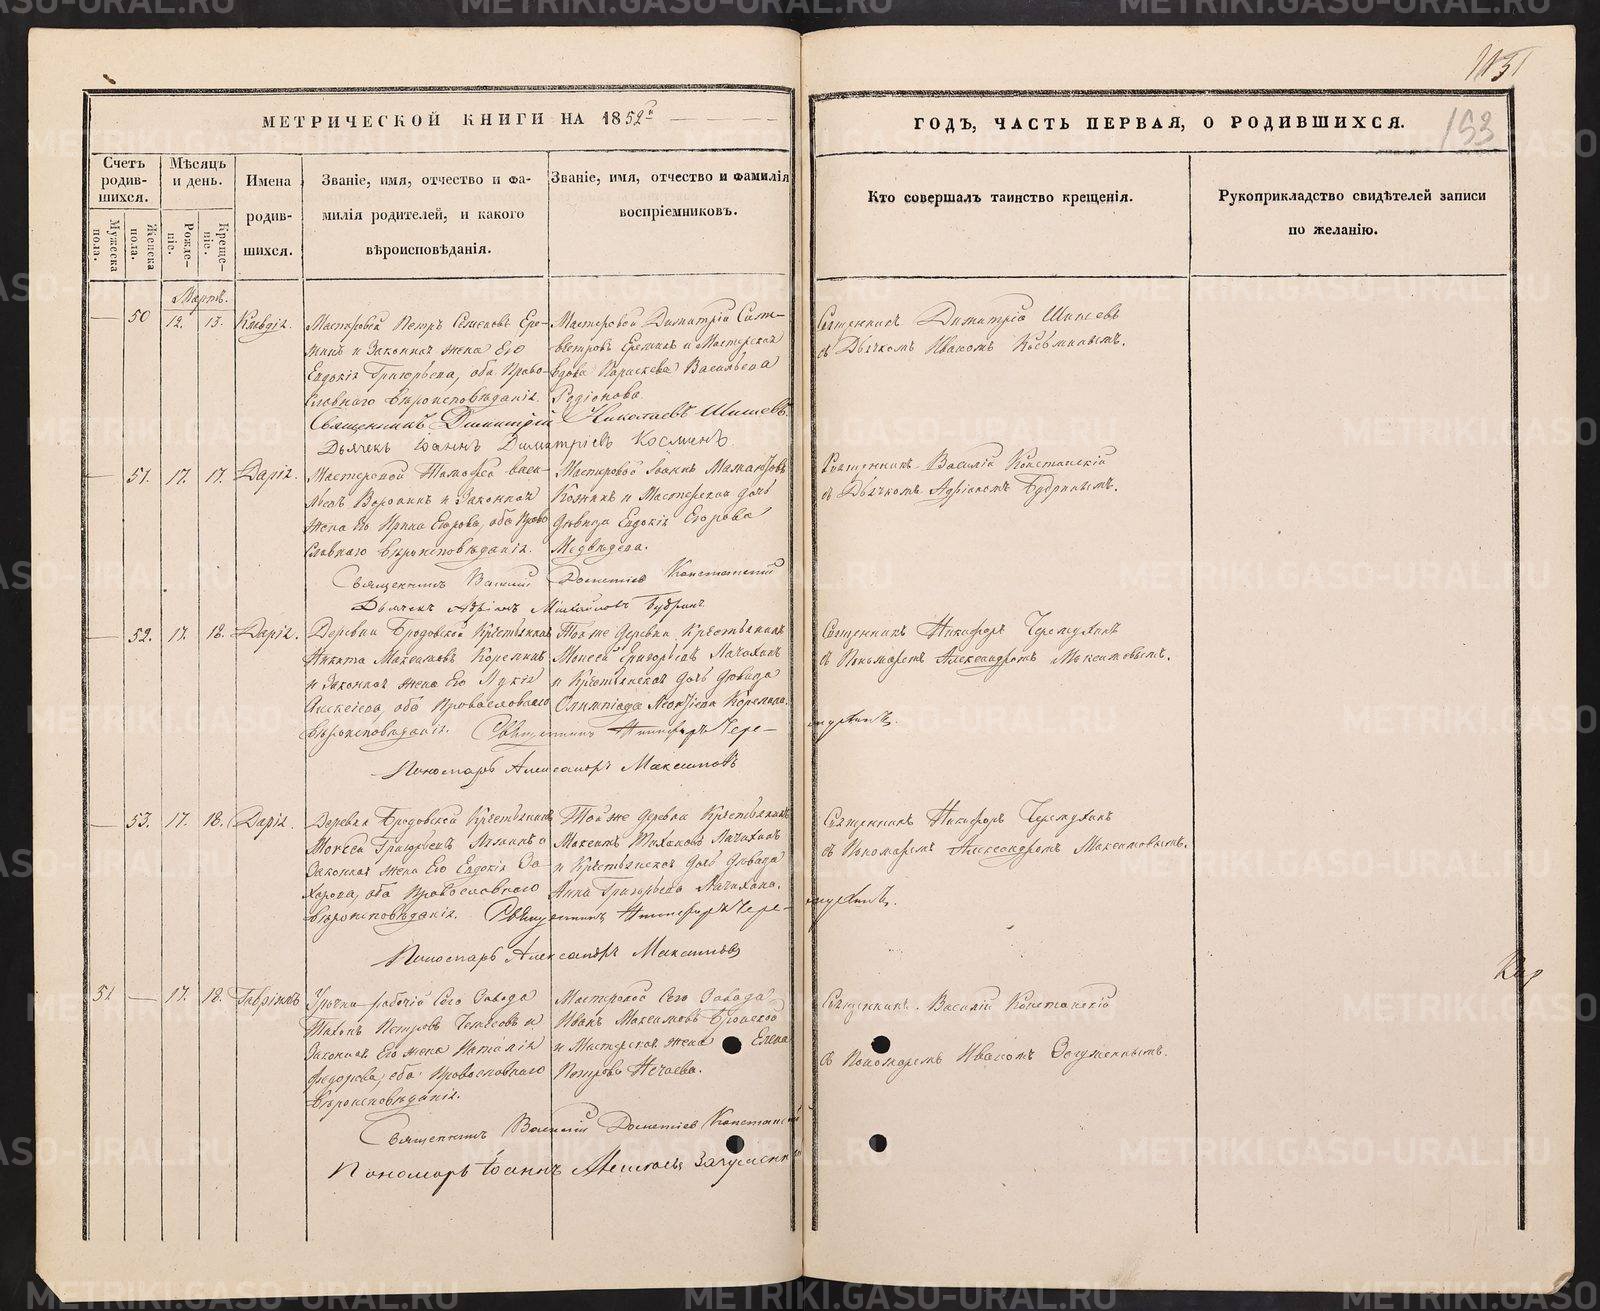 МЕТРИЧЕСКОЙ КНИГИ НА 1852й
Счетъ родив- шихся.
Мѣсяцъ и день.
Имена родив- шихся.
Званіе, имя, отчество и фа-
милія родителей, и какого
вѣроисповѣданія.
Званіе, имя, отчество и фамилія
воспріемниковъ.
Мужеска пола.
Женска пола.
Рожде- ніе.
Креще- ніе.
Мартъ.
50 12. 13. Клавдія.
Мастеровой Петръ Семеновъ Ере-
минъ и Законная жена Его
Евдокія Григорьева, оба Право-
славнаго Вѣроисповѣданія.
Мастеровой Димитрій Сили-
вестровъ Ереминъ и Мастерская
вдова Параскева Васильева
Родіонова.
Священникъ Димитрій Николаевъ Шишевъ.
Дьячекъ Іоаннъ Димитріевъ Косминъ.
51. 17. 17. Дарія.
Мастеровой Тимофей Васи-
льевъ и Законная
жена Его Ирина Егорова, оба Право
славнаго Вѣроисповѣданія.
Мастеровой Іоаннъ
и Мастерская дочь
дѣвица Евдокія Егорова
Медвѣдева.
Священникъ Василій Дометіевъ
Дьячекъ Адріанъ Михайловъ Будринъ
52. 17. 18. Дарія.
Деревни Бродовской Крестьянинъ
Никита Максимовъ Корелинъ
и Законная жена Его Лукія
Алексіева, оба Православнаго
Вѣроисповѣданія.
Той же деревни Крестьянинъ
Моисей Григорьевъ
и Крестьянская дочь дѣвица
Олимпіада Корелина.
Священникъ Никифоръ Чере-
мухинъ.
Пономарь Александръ Максимовъ
53. 17. 18. Дарія.
Деревни Бродовской Крестьянинъ
Моисей Григорьевъ и
Законная жена Его Евдокія За-
харова, оба Православнаго
Вѣроисповѣданія.
Той же деревни Крестьянинъ
Максимъ Тихоновъ
и Крестьянская дочь дѣвица
Анна Григорьева
Священникъ Никифоръ Чере-
мухинъ.
Пономарь Александръ Максимовъ
51 17. 18. Гавріилъ
рабочій Сего Завода
Тихонъ Петровъ и
Законная Его жена Наталія
Федорова, оба Православнаго
Вѣроисповѣданія.
Мастеровой Сего Завода
Иванъ Максимовъ
и Мастерская жена Елена
Петрова Нечаева.
Священникъ Василій Дометіевъ
Пономарь Іоаннъ
1151
153
ГОДЪ, ЧАСТЬ ПЕРВАЯ, О РОДИВШИХСЯ.
Кто совершалъ таинство крещенія.
Рукоприкладство свидѣтелей записи
по желанію.
Священникъ Димитрій Шишевъ
съ Дьячкомъ Иваномъ Косьминымъ.
Священникъ Василій
съ Дьячкомъ Адріаномъ Будринымъ.
Священникъ Никифоръ Черемухинъ
съ Пономаремъ Александромъ Максимовымъ.
Священникъ Никифоръ Черемухинъ
съ Пономаремъ Александромъ Максимовымъ.
Священникъ Василій
съ Пономаремъ Иваномъ
METRIKI.GASO-URAL.RU